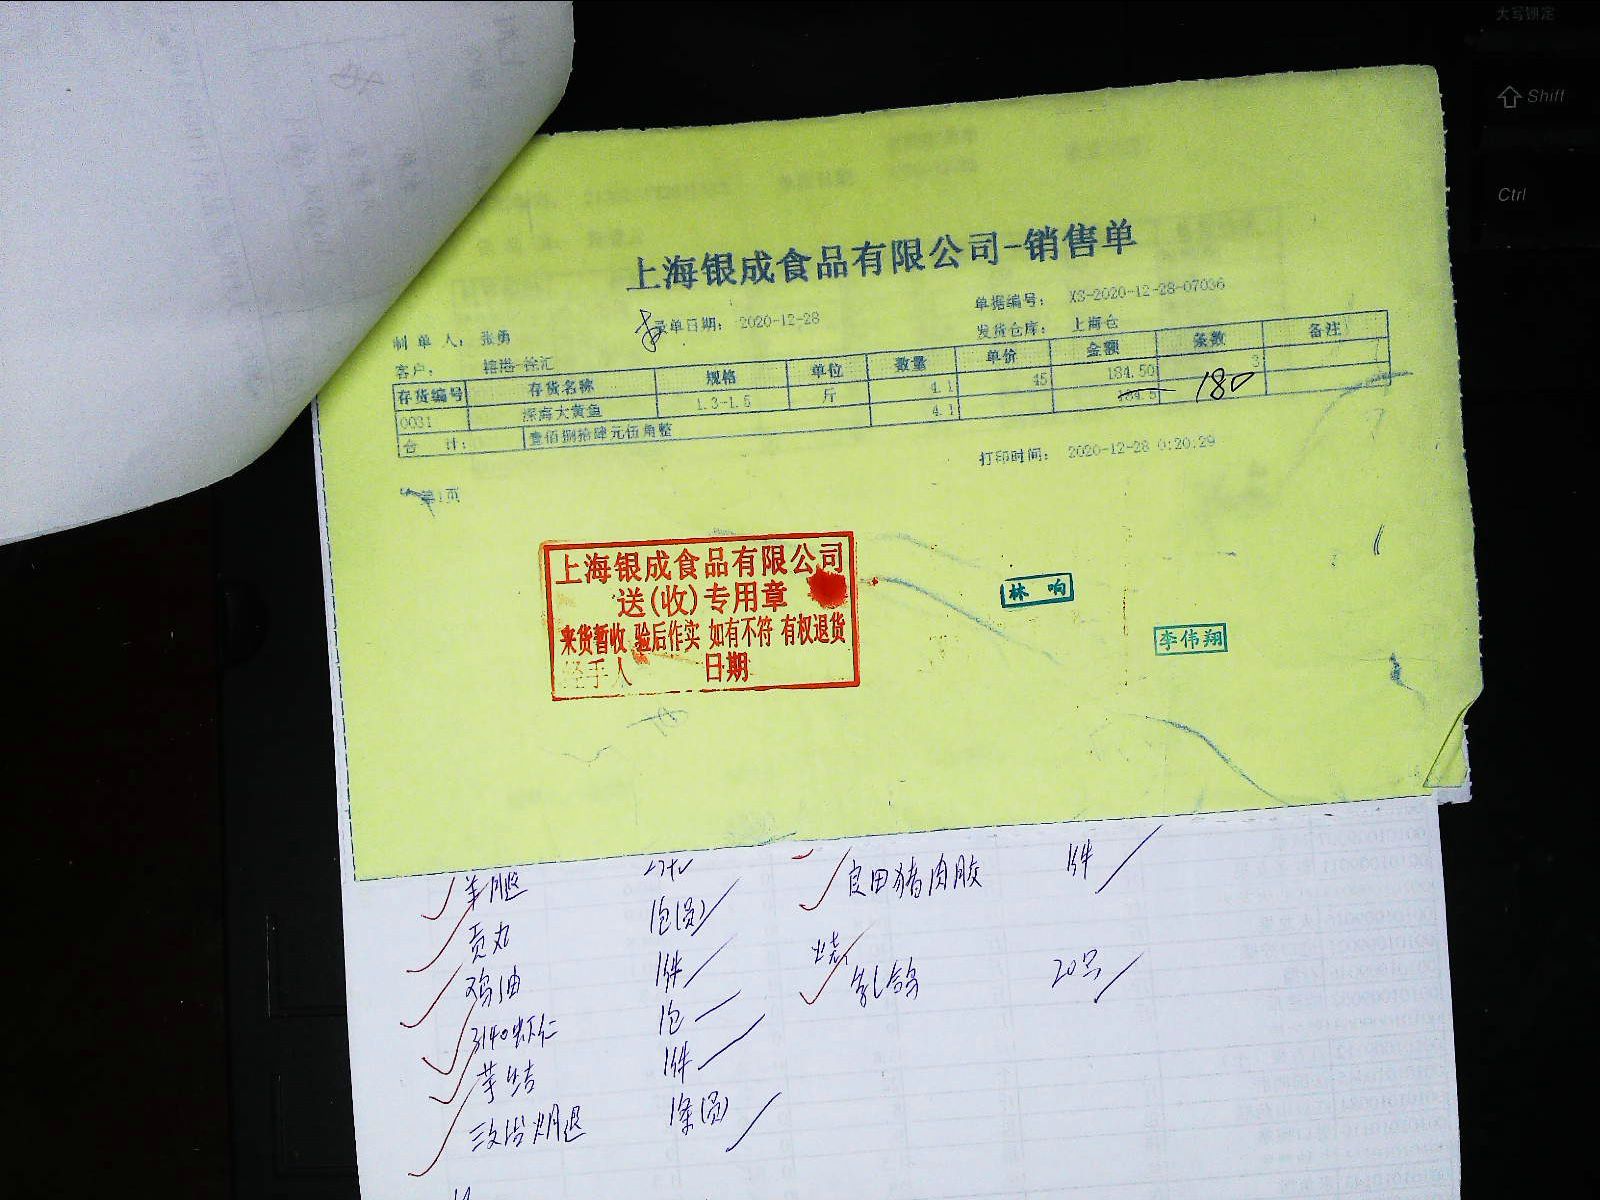 大写锁定
Shift
Ctrl
上海银成食品有限公司-销售单
制单人: 张勇 录单日期: 2020-12-28 单据编号: XS-2020-12-28-07036
客户: 榕港-徐汇 发货仓库: 上海仓
存货编号 存货名称 规格 单位 数量 单价 金额 条数 备注
0031 深海大黄鱼 1.3-1.5 斤 4.1 45 184.50 3
合计: 壹佰捌拾肆元伍角整 4.1 184.5 180
第1页 打印时间: 2020-12-28 0:20:29
上海银成食品有限公司
送(收)专用章
来货暂收 验后作实 如有不符 有权退货
经手人 日期
林响
李伟翔
羊腿
良田猪肉胶 1件
贡丸 1包(员)
鸡油 1件
烧乳鸽 20只
3140虾仁 1包
1件
三文治火腿 1条(员)